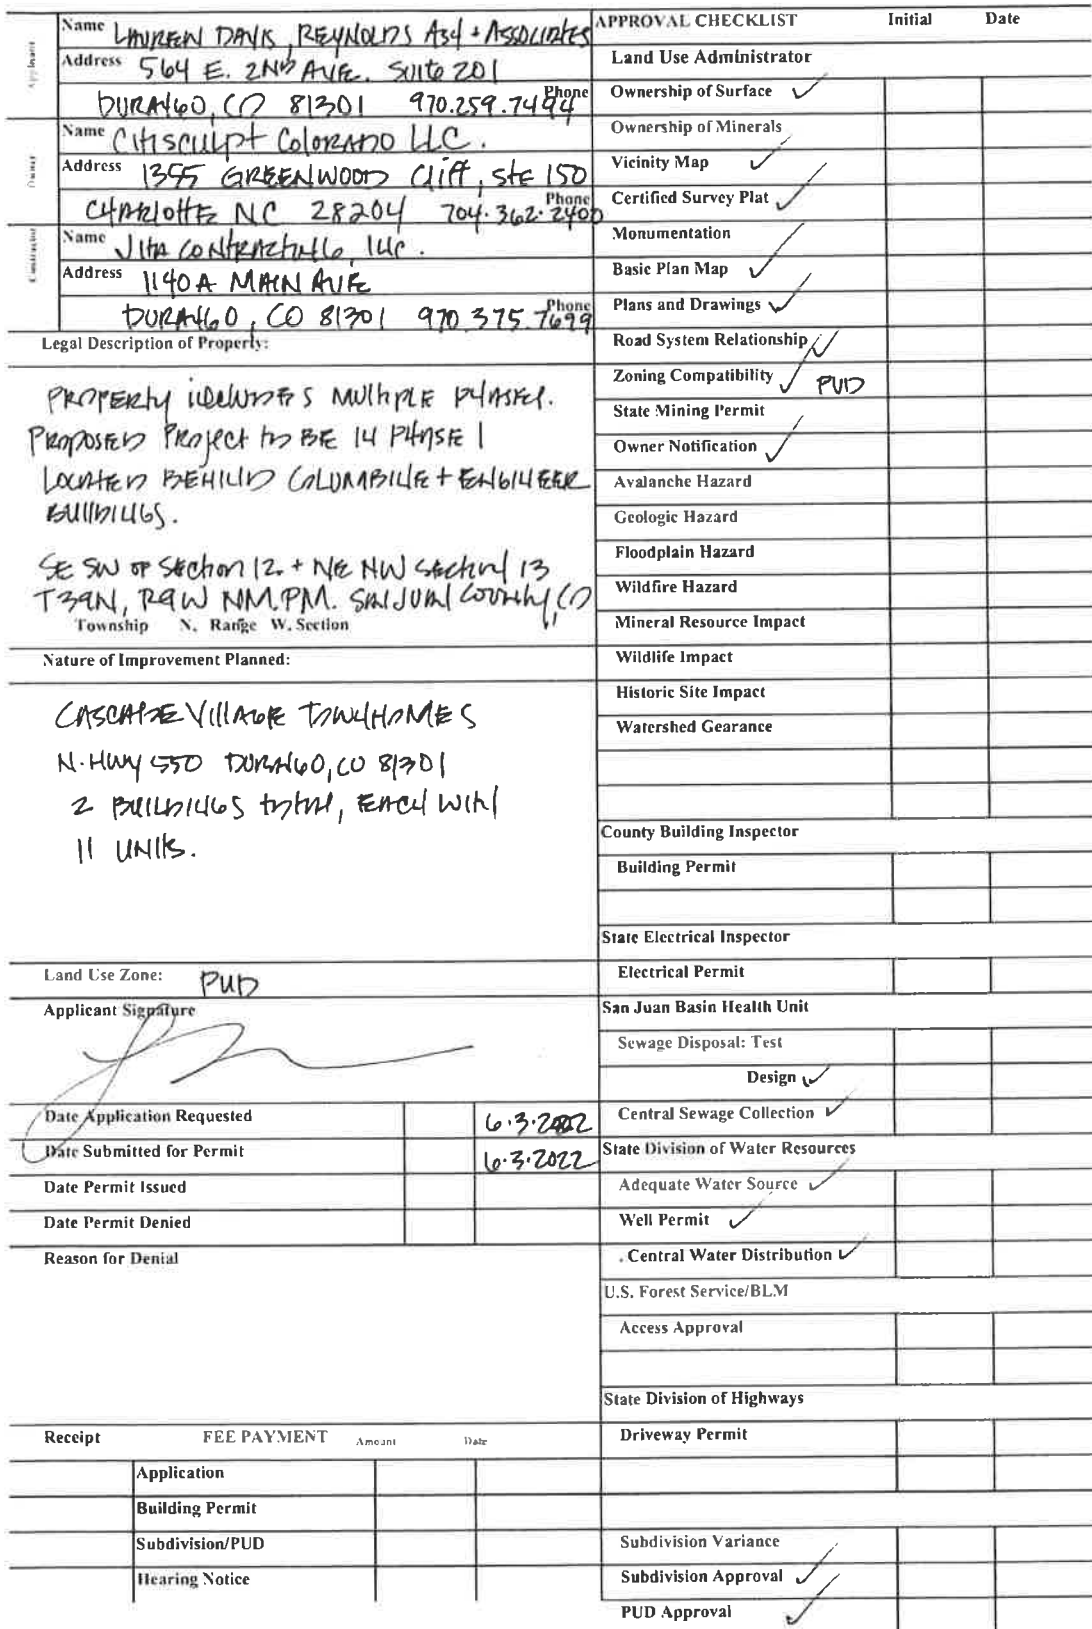 Applicant
Name LAUREN DAVIS, REYNOLDS ASH + ASSOCIATES
Address 564 E. 2ND AVE. Suite 201
DURANGO, CO 81301 970.259.7494 Phone
Owner
Name CitiSculpt Colorado LLC.
Address 1355 GREENWOOD Cliff, Ste 150
CHARLOTTE NC 28204 704.362.2400 Phone
Contractor
Name Vita CONTRACTING, LLC.
Address 1140 A MAIN AVE
DURANGO, CO 81301 970.375.7699 Phone
Legal Description of Property:
PROPERTY INCLUDES MULTIPLE PHASES.
PROPOSED PROJECT to BE IN PHASE 1
LOCATED BEHIND COLUMBINE + ENGINEER
BUILDINGS.
SE SW OF Section 12 + NE NW Section 13
T39N, R9W NM.PM. SAN JUAN County, CO
Township N. Range W. Section
Nature of Improvement Planned:
CASCADE VILLAGE TOWNHOMES
N. HWY 550 DURANGO, CO 81301
2 BUILDINGS total, EACH WITH
11 UNITS.
Land Use Zone: PUD
Applicant Signature
Date Application Requested 6.3.2022
Date Submitted for Permit 6.3.2022
Date Permit Issued
Date Permit Denied
Reason for Denial
Receipt FEE PAYMENT Amount Date
Application
Building Permit
Subdivision/PUD
Hearing Notice
APPROVAL CHECKLIST Initial Date
Land Use Administrator
Ownership of Surface ✓
Ownership of Minerals
Vicinity Map ✓
Certified Survey Plat ✓
Monumentation
Basic Plan Map ✓
Plans and Drawings ✓
Road System Relationship ✓
Zoning Compatibility ✓ PUD
State Mining Permit
Owner Notification ✓
Avalanche Hazard
Geologic Hazard
Floodplain Hazard
Wildfire Hazard
Mineral Resource Impact
Wildlife Impact
Historic Site Impact
Watershed Gearance
County Building Inspector
Building Permit
State Electrical Inspector
Electrical Permit
San Juan Basin Health Unit
Sewage Disposal: Test
Design ✓
Central Sewage Collection ✓
State Division of Water Resources
Adequate Water Source ✓
Well Permit ✓
. Central Water Distribution ✓
U.S. Forest Service/BLM
Access Approval
State Division of Highways
Driveway Permit
Subdivision Variance
Subdivision Approval ✓
PUD Approval ✓